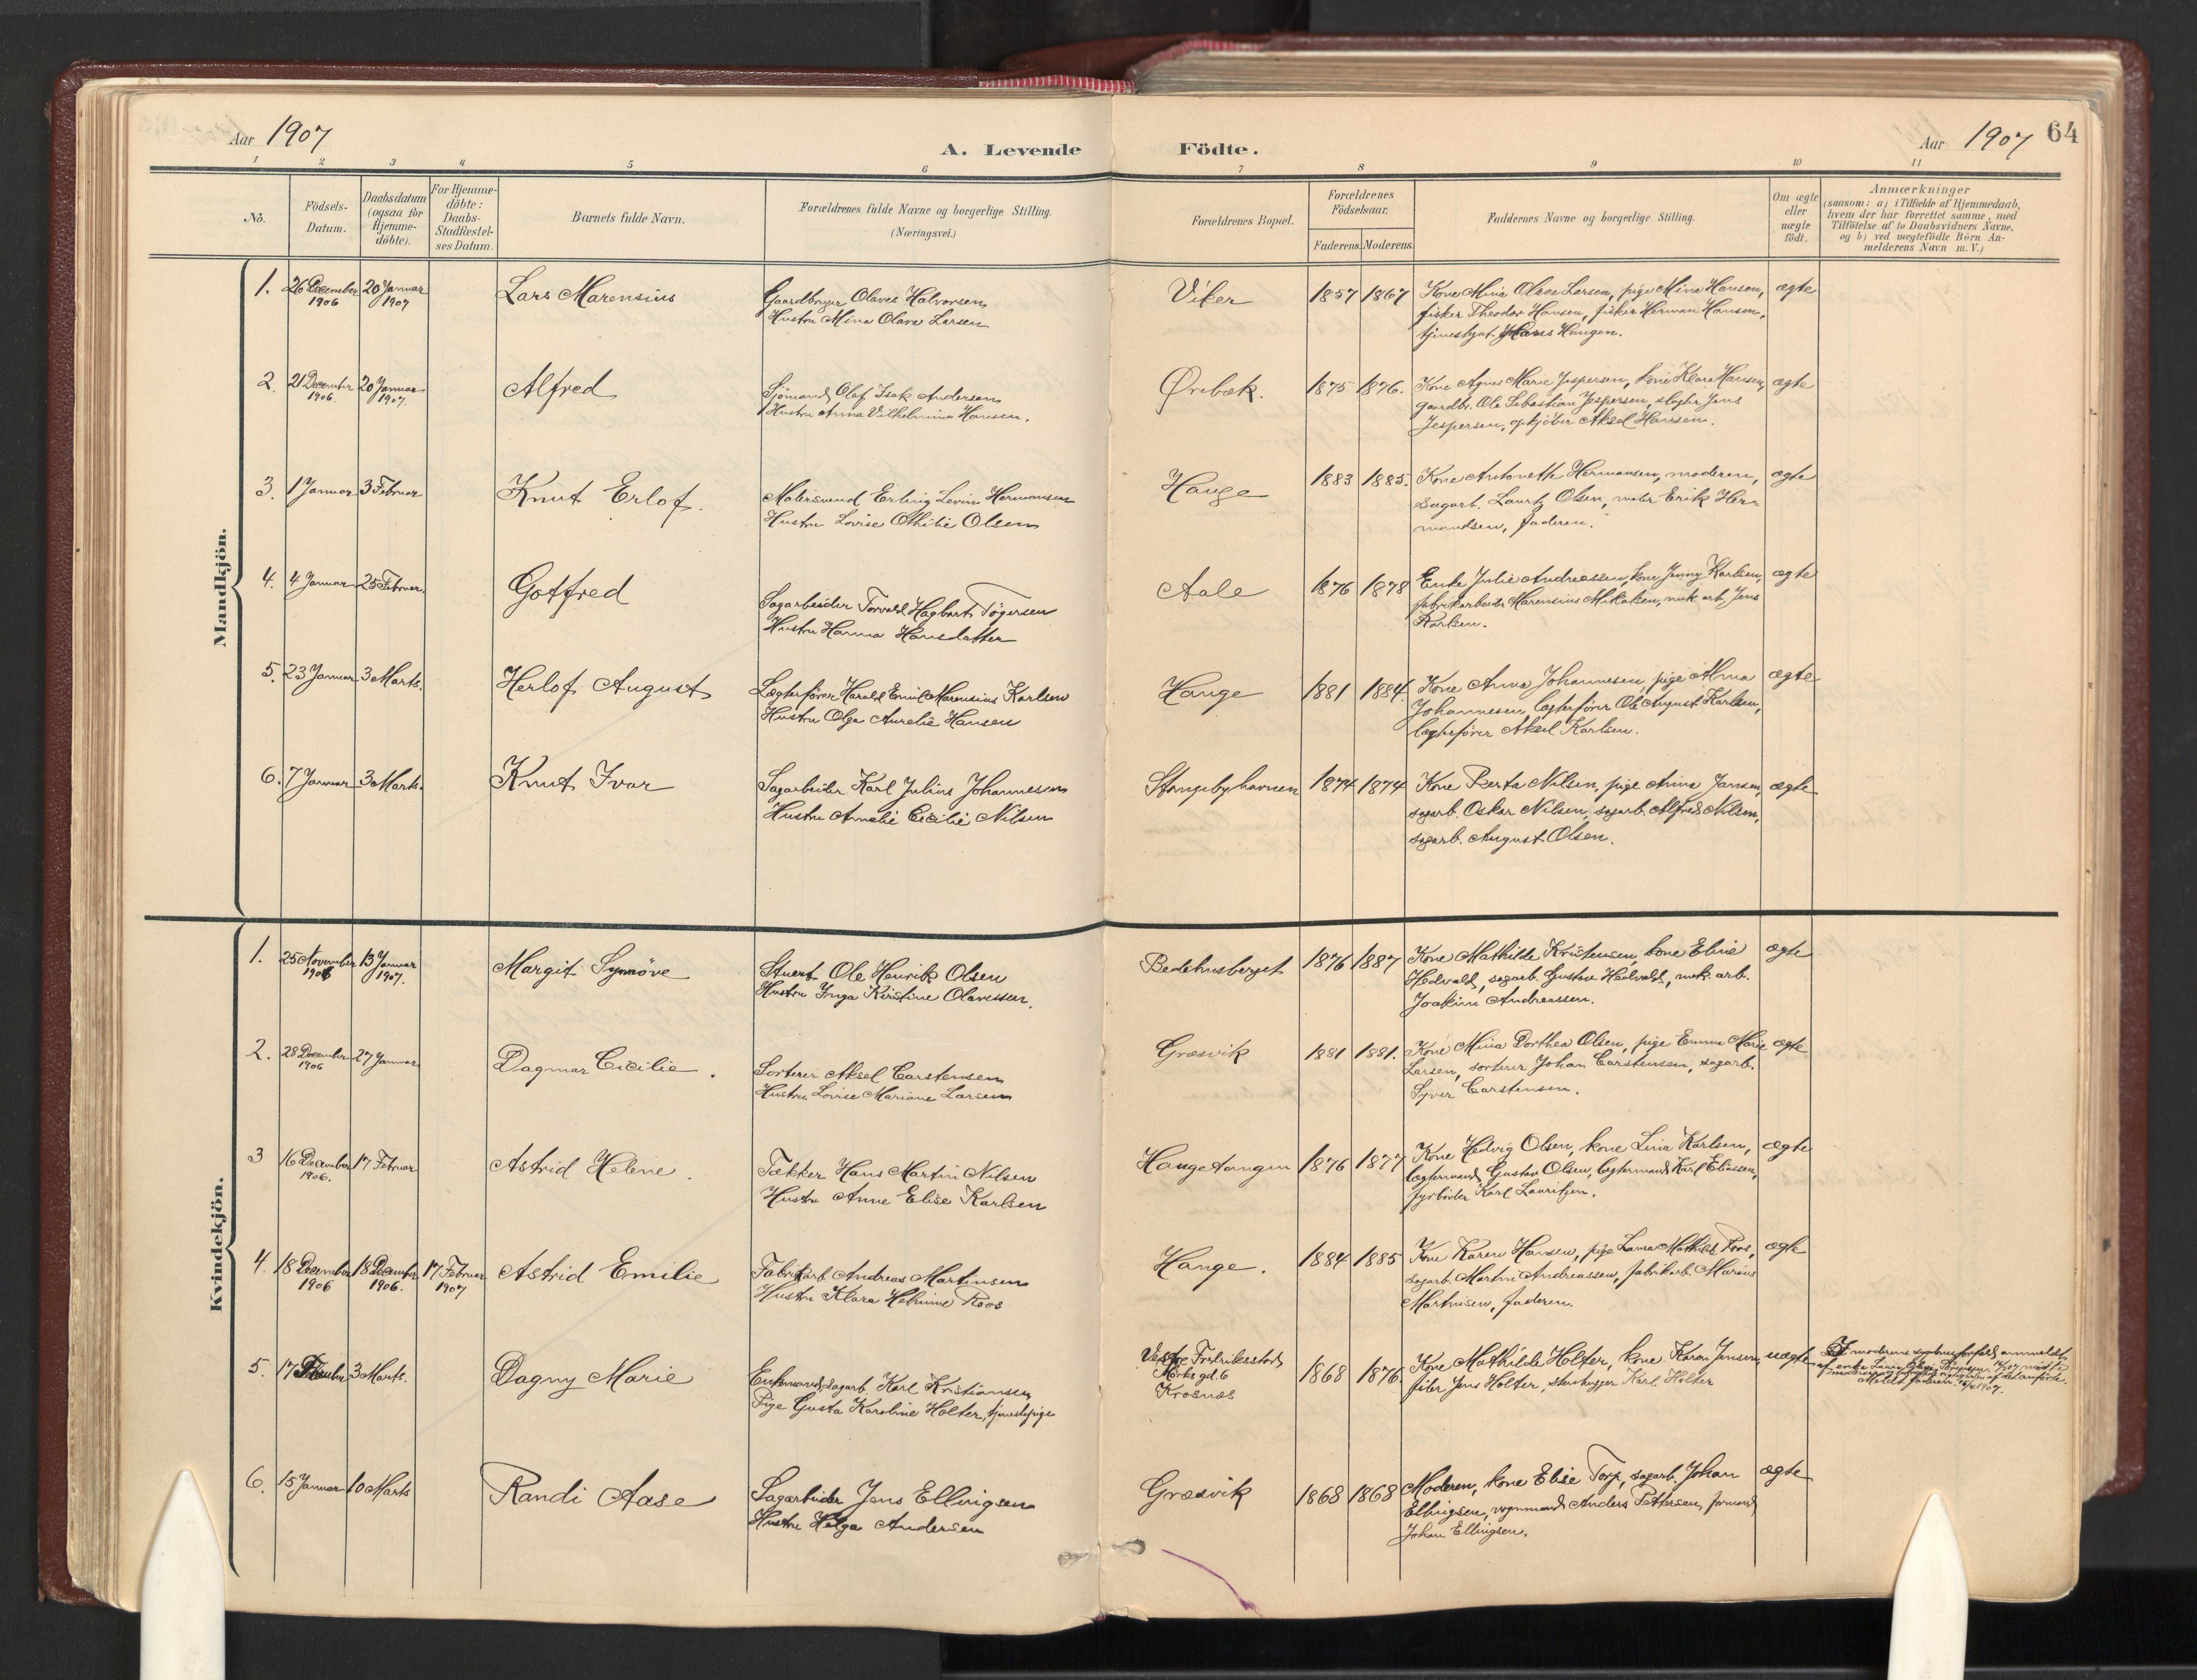 Aar 1907
A. Levende Födte.
Aar 1907 64
1 2 3 4 5 6 7 8 9 10 11
Nō.
Födsels-
Datum.
Daabsdatum
(ogsaa for
Hjemme-
döbte).
For Hjemme-
döbte:
Daabs-
Stadfæstel-
ses Datum.
Barnets fulde Navn.
Forældrenes fulde Navne og borgerlige Stilling.
(Næringsvei.)
Forældrenes Bopæl.
Forældrenes
Födselsaar.
Faderens. Moderens.
Faddernes Navne og borgerlige Stilling.
Om ægte
eller
uægte
födt.
Anmærkninger
(saasom: a) i Tilfælde af Hjemmedaab,
hvem der har forrettet samme, med
Tilföielse af to Daabsvidners Navne,
og b) ved uægtefödte Börn An-
melderens Navn m. V.)
Mandkjön.
1. 26 December
1906
20 Januar
1907
Lars Marensius
Gaardbruger Olaves Halvorsen
Hustru Mina Olava Larsen
Viker
1857 1867
Kone Mina Olava Larsen, pige Mina Hansen,
fisker Theodor Hansen, fisker Herman Hansen,
tjenestegut Hans Haugen.
ægte
2. 21 December
1906.
20 Januar
1907.
Alfred
Sjömand Olaf Isak Andersen
Hustru Anna Vilhelmina Hansen.
Ørebæk.
1875 1876.
Kone Agnes Marie Jespersen, kone Klara Hansen,
gaardbr. Ole Sebastian Jespersen, slagter Jens
Jespersen, opkjøber Aksel Hansen.
ægte
3. 1 Januar 3 Februar
Knut Erlof.
Malersvend Erling Levin Hermansen
Hustru Lovise Othilie Olsen
Hauge
1883 1885.
Kone Antonette Hermansen, moderen,
sagarb. Lauritz Olsen, maler Erik Her-
mandsen, faderen.
ægte
4. 4 Januar 25 Februar.
Gotfred
Sagarbeider Torvald Hagbart Tögersen
Hustru Hanna Hansdatter
Aale
1876 1878
Enke Julie Andreassen, kone Jenny Karlsen,
fabrikarbeider Marensius Mikalsen, mek. arb. Jens
Karlsen.
ægte
5. 23 Januar 3 Marts.
Herlof August
Lægterfører Harald Emil Marensius Karlsen
Hustru Olga Aurelie Hansen
Hauge
1881 1884.
Kone Anna Johannesen, pige Alma
Johannesen, lægterfører Ole August Karlsen,
lægterfører Aksel Karlsen.
ægte
6. 7 Januar 3 Marts.
Knut Ivar
Sagarbeider Karl Julius Johannesen
Hustru Amalie Cecilie Nilsen
Stangebyhavnen
1874 1874
Kone Berta Nilsen, pige Anna Jansen,
sagarb. Oskar Nilsen, sagarb. Alfred Nilsen,
sagarb. August Olsen.
ægte
Kvindekjön.
1. 25 November
1906
13 Januar
1907.
Margit Synnöve
Stuert Ole Henrik Olsen
Hustru Inga Kristine Olavessen.
Bedehusberget
1876 1887
Kone Mathilde Kristensen, kone Elise
Hedvald, sagarb. Gustav Hedvald, mek. arb.
Joakim Andreassen.
ægte
2. 28 December
1906
27 Januar
Dagmar Cecilie.
Sorterer Aksel Carstensen
Hustru Lovise Mariane Larsen
Græsvik
1881 1881.
Kone Mina Dorthea Olsen, pige Emma Marie
Larsen, sorterer Johan Carstensen, sagarb.
Syver Carstensen.
ægte
3 16 December
1906.
17 Februar
Astrid Helene.
Tækker Hans Martin Nilsen
Hustru Anne Elise Karlsen
Haugetangen
1876 1877
Kone Hedvig Olsen, kone Lina Karlsen,
lægtermand Gustav Olsen, lægtermand Karl Eliassen,
fyrbøder Karl Lauritzen.
ægte
4. 18 December
1906
18 December
1906.
17 Februar
1907
Astrid Emilie
Fabrikarb. Andreas Martinsen
Hustru Klara Helmine Roos
Hauge.
1884 1885
Kone Karen Hansen, pige Laura Mathilde Roos,
sagarb. Martin Andreassen, fabrikarb. Marius
Martinsen, faderen.
ægte
5. 17 3 Marts.
Dagny Marie
Enkemand, sagarb. Karl Kristiansen
Pige Gusta Karoline Holter, tjenestepige
Vestre Fredriksstad
Mørks gd. 6
Krosnæs
1868 1876.
Kone Mathilde Holter, kone Karen Jensen,
filer Jens Holter, stenhugger Karl Holter
uægte
I moderens sygdomsforfald anmeldt
af enke
Meldt faderen 16/4 1907.
6. 15 Januar 10 Marts
Randi Aase
Sagarbeider Jens Ellingsen
Hustru Helga Andersen
Græsvik
1868 1868
Moderen, kone Elise Torp, sagarb. Johan
Ellingsen, vognmand Anders Pettersen, formand
Johan Ellingsen.
ægte